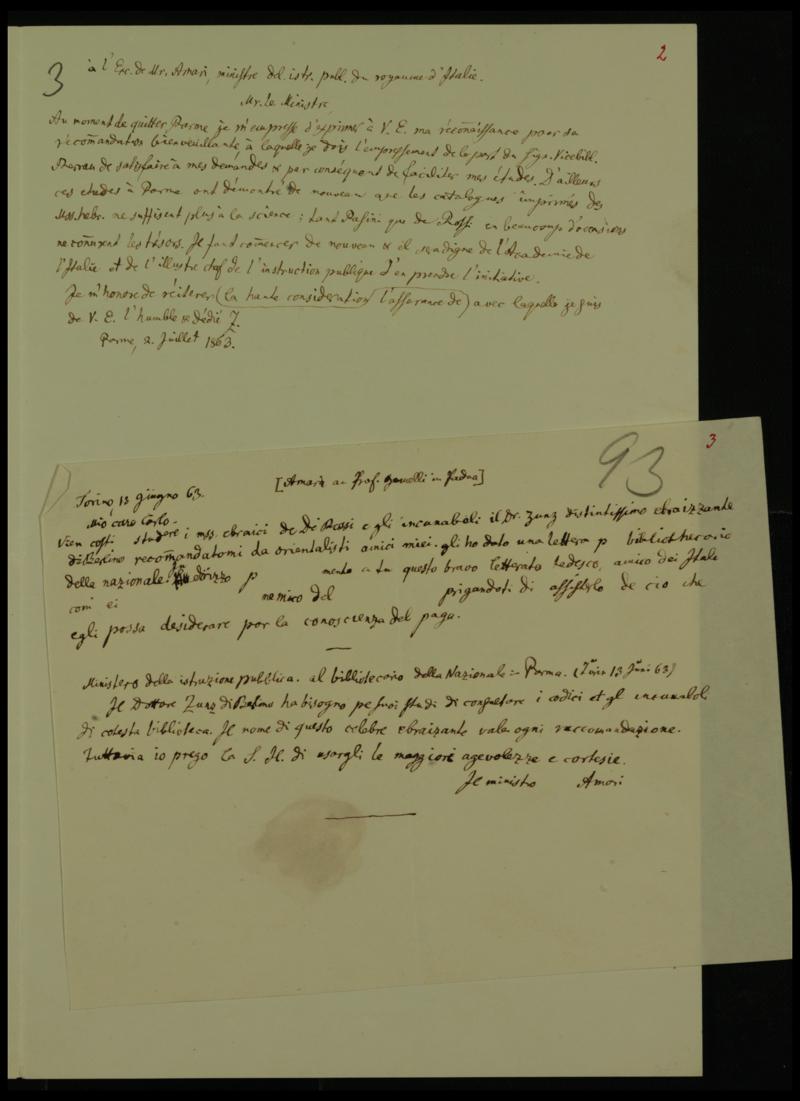 3
2
à l'Exc. de Mr. Amari, ministre del istr. publ. du royaume d'Italie.
Mr. le Ministre,
Au moment de quitter Parme je m'empresse d'exprimer à V. E. ma reconnaissance pour sa
recom̄andation bienveuillante, à laquelle je dois l'empressement de la part du Sign. Vicebibl.
de satisfaire à mes demandes & par conséquent de faciliter mes études. D'ailleurs
ces études à Parme ont démontré de nouveau que les catalogues imprimés des
Mss. hebr. ne suffisent plus à la science: tant Pasini que de Rossi en beaucoup d'occasions
ne con̄urent les trésors. Il faut com̄encer de nouveau & il sera digne de l'Academie de
l'Italie et de l'illustre chef de l'instruction publique d'en prendre l'initiative.
Je m'honore de réiterer (la haute consideration l'assurance de) avec laquelle je suis
de V. E. l'humble & dédié Z.
Parme, 2. Juillet 1863.
93
3
[Amari an Prof. in Padua]
Torino, 13 giugno 63.
Mio caro Carlo.
Vien costì studere i mss. ebraici de De Rossi e gli incunaboli il Dr. Zunz distintissimo ebraizzante
di Berlino recomandatomi da orientalisti amici miei. gli ho dato una lettera p bibliothecario
della nazionale. p mente a tu questo bravo letterato tedesco, amico dei Itali
com ei nemico del prigandoti di assisterlo de cio che
egli possa desiderare por la conoscienza del paga.
Ministero della istruzione pubblica. al bibliotecario della Nazionale - Parma. (Turin 13 Juni 63)
Il Dottore Zunz di Berlino ha bisogno pe suoi studi di consultore i codici et gl incunaboli
di cotesta biblioteca. Il nome di questo celebre ebraizante vale ogni raccomandazione.
Tuttavia io prego la S. Il. di usargli le maggiori agevolezze e cortesie.
Il ministro Amari